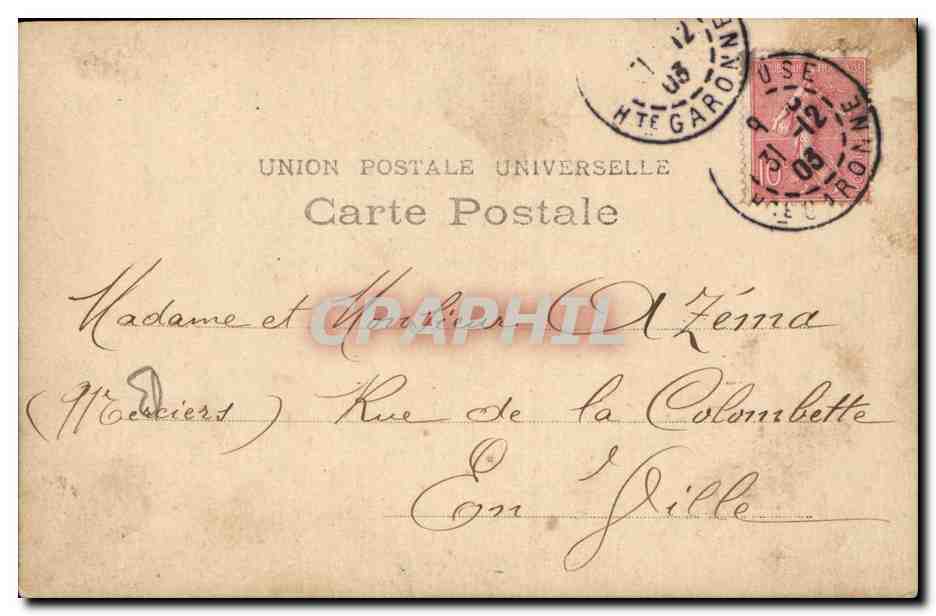 31 12 03
Hte GARONNE
USE
9 31 -12 03
Hte GARONNE
10
UNION POSTALE UNIVERSELLE
Carte Postale
Madame et Monsieur Azéma
CPAPHIL
(Merciers) Rue de la Colombette
En Ville